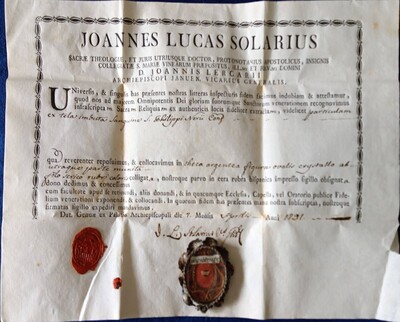 JOANNES LUCAS SOLARIUS
SACRÆ THEOLOGIÆ, ET JURIS UTRIUSQUE DOCTOR, PROTONOTARIUS APOSTOLICUS, INSIGNIS
COLLEGIATÆ S. MARIÆ VINEARUM PRÆPOSITUS,
D. D. JOANNIS LERCARII
ARCHIEPISCOPI JANUEN. VICARIUS GENERALIS.
Universis, & singulis has præsentes nostras litteras inspecturis fidem facimus indubiam & attestamur,
quod nos ad majorem Omnipotentis Dei gloriam suorumque Sanctorum venerationem recognovimus
infrascriptam Sacram Reliquiam ex authenticis locis fideliter extractam, videlicet particulam
ex tela imbuta Sanguine S. Philippi Nerii Conf.
quam reverenter exposuimus, & collocavimus in theca argentea figuræ ovalis crystallo ab
utraque parte munita
filo serico rubri coloris colligat, nostroque parvo in cera rubra hispanica impressa sigillo obsignat
dono dedimus & concessimus
cum facultate apud se retinendi, aliis donandi, & in quacumque Ecclesia, Capella, vel Oratorio publicæ Fidelium
venerationi exponendi & collocandi. In quorum fidem has præsentes manu nostra subscriptas, nostroque
firmatas sigillo expediri mandavimus.
Dat. Genuæ ex Palatio Archiepiscopali die 7. Mensis Aprilis Anni